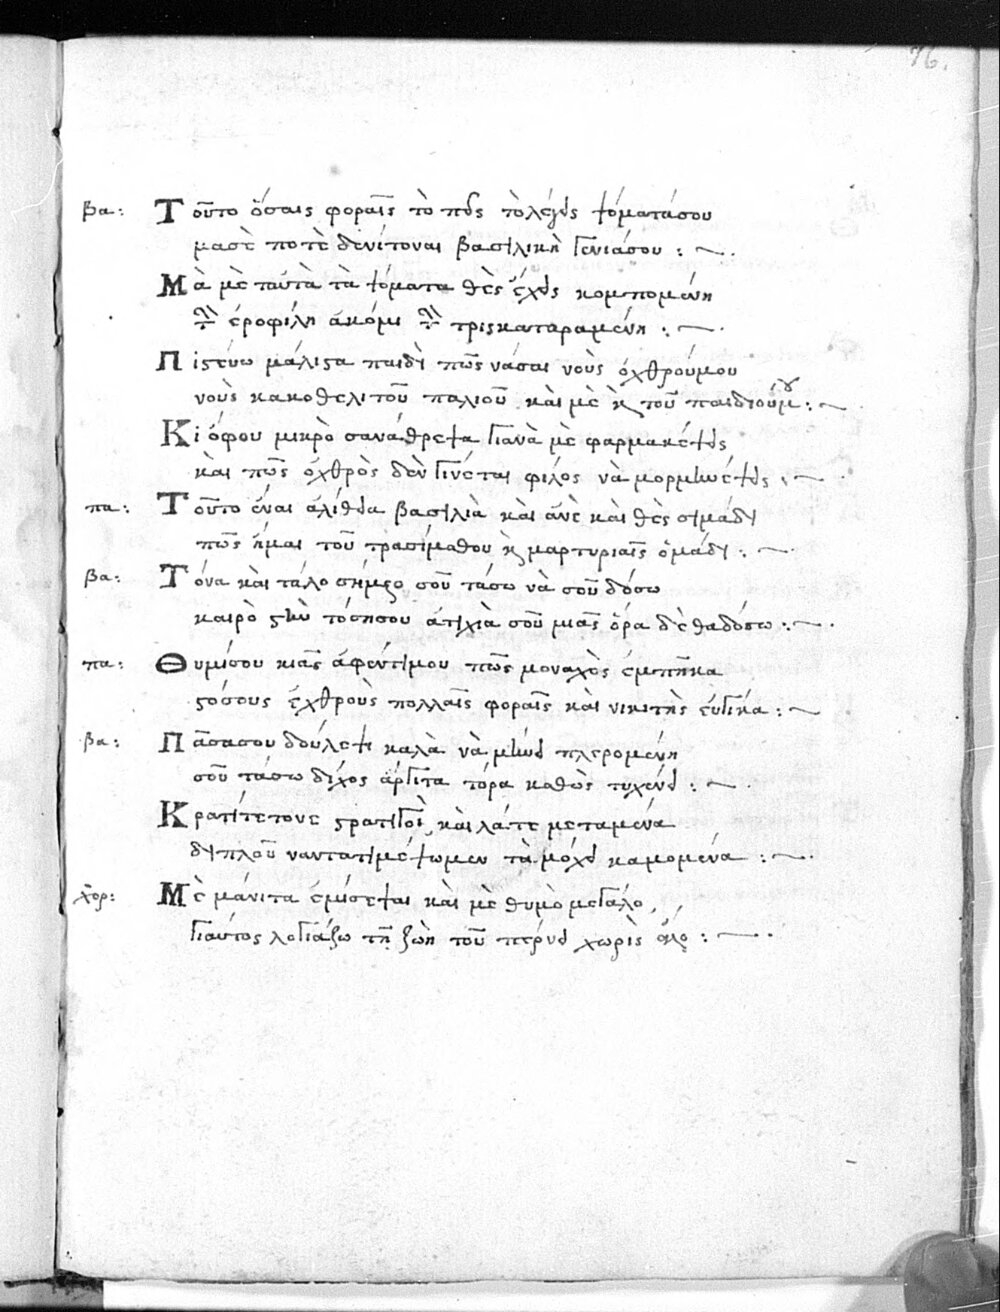 76.
βα: Τοῦτο ὅσαις φοραῖς τὸ πῆς τὸ λέγις ψόματά σου
μα σὲ ποτὲ δενίτοναι βασιλικὴ γενιά σου :~
Μὰ μὲ ταύτὰ τὰ ψόματα θὲς ἔχις κομπομένη
ἐροφίλη ἀκόμι τρισκαταραμένη :~
Πιστεύω μάλιστα παιδὶ πῶς νάσαι νοὺς ὀχθρού μου
νοὺς κακοθελιτοῦ παλιοῦ καὶ μὲ κ τοῦ παιδιού μου :~
Κι ὄφου μικρὸ σανάθρεψα γιανὰ μὲ φαρμακέψις
κὰι πῶς ὀχθρὸς δὲν γινέται φίλος νὰ μορμηνέψις :~
πα: Τοῦτο ἔναι ἀλίθια βασιλιὰ κὰι ἄνε κὰι θὲς σιμάδι
πῶς ἦμαι τοῦ τρασίμαθου κ μαρτυριαῖς ὁμάδι :~
βα: Τόνα κὰι τάλο σήμερο σοῦ τάσω νὰ σοῦ δόσω
καιρὸ στὴν τόση σου ἀτιχιὰ σοῦ μιᾶς ὅρα δὲ θα δόσω :~
πα: Θυμίσου κιᾶς ἀφέντι μου πῶς μοναχὸς ἐμπῆκα
στόσους ἐχθροὺς πολλαῖς φοραῖς κὰι νικιτὴς ἐυγίκα :~
βα: Πᾶσα σου δούλεψι καλὰ νὰ μὴν πλερομένη
σοῦ τάσω δίχος ἀργιτα τόρα καθὼς τυχένι :~
Κρατίτε τονε στρατιγοὶ κὰι λάτε μεταμένα
διπλοῦ ναντατιμέψωμεν τὰ μόχι καμομένα :~
χορ: Μὲ μάνιτα ἐμίσεψαι κὰι μὲ θυμὸ μεγάλο,
γιαύτος λογιάζω τῆ ζωὴ τοῦ πέρνι χωρὶς ἄλο :~